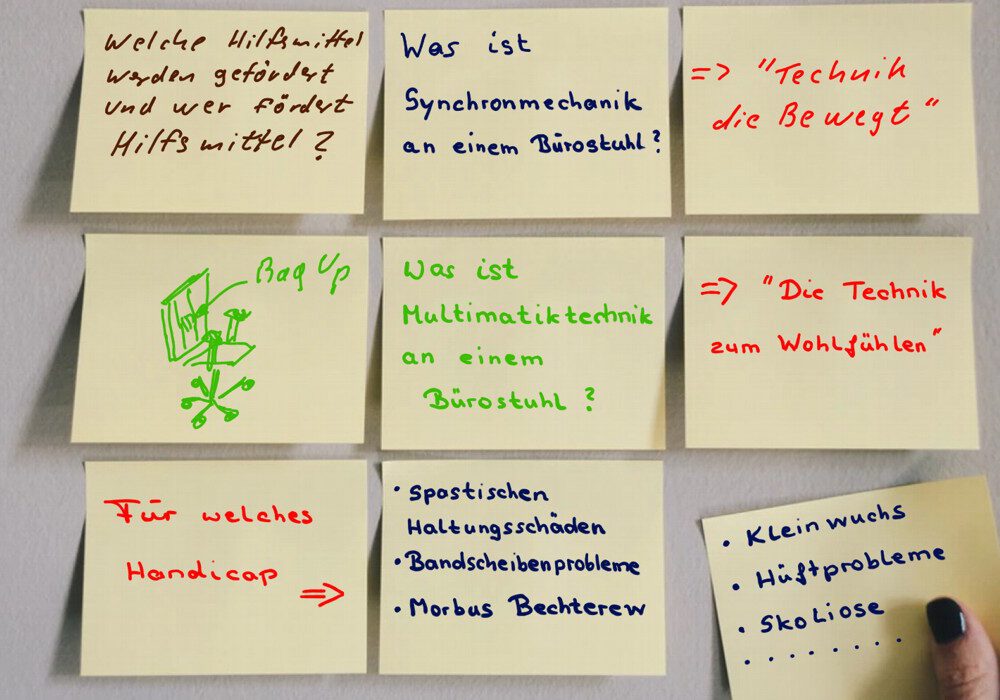 Welche Hilfsmittel
werden gefördert
und wer fördert
Hilfsmittel?
Was ist
Synchronmechanik
an einem Bürostuhl?
=> "Technik
die Bewegt"
Bag Up
Was ist
Multimatiktechnik
an einem
Bürostuhl?
=> "Die Technik
zum Wohlfühlen"
Für welches
Handicap =>
• spastischen
Haltungsschäden
• Bandscheibenprobleme
• Morbus Bechterew
• Kleinwuchs
• Hüftprobleme
• Skoliose
. . . . . . . .